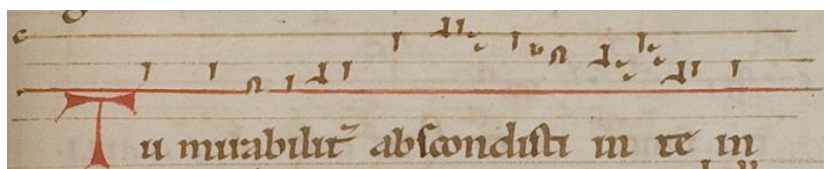 Tu mirabilit᷑ abscondisti in te in